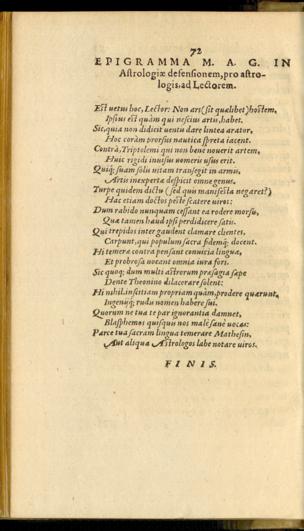 72
EPIGRAMMA M. A. G. IN
Astrologiæ defensionem, pro astro-
logis, ad Lectorem.
Est uetus hoc, Lector: Non ars (sit qualibet) hostem,
Ipsius est quàm qui nescius artis, habet.
Sic, quia non didicit uentu dare lintea arator,
Hoc coràm prorsus nautica spreta iacent.
Contrà, Triptolemi qui non bene nouerit artem,
Huic rigidi inuisus uomeris usus erit.
Quiq; suam solis uitam transegit in armis,
Artis inexperta despicit omne genus.
Turpe quidem dictu (sed quis manifesta negaret?)
Hac etiam doctos peste scatere uiros:
Dum rabido nunquam cessant ea rodere morsu,
Quæ tamen haud ipsi perdidicere satis.
Qui trepidos inter gaudent clamare clientes,
Carpunt, qui populum sacra fidemq; docent.
Hi temerè contrà pensant conuicia lingua,
Et probrosa uocant omnia iura fori.
Sic quoq; dum multi astrorum præsagia sæpe
Dente Theonino dilacerare solent:
Hi nihil insitiam propriam quàm, prodere quærunt,
Ingenijq; rudis nomen habere sui.
Quorum ne tua te par ignorantia damnet,
Blasphemos quisquis nos malè sanè uocas:
Parce tua sacram lingua temerare Mathesin,
Aut aliqua Astrologos labe notare uiros.
FINIS.